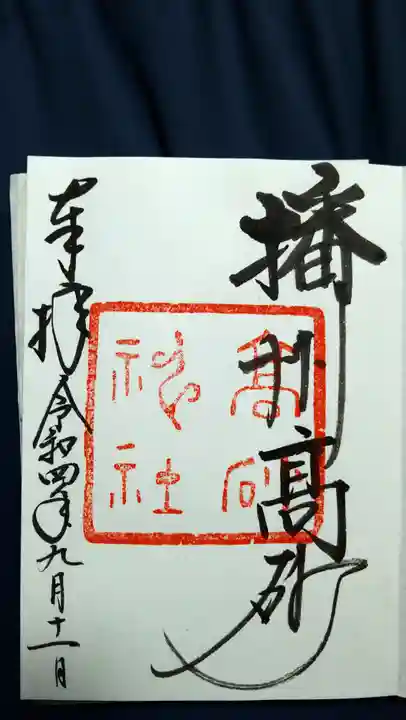 播州高砂
高砂
神社
奉拝
令和四年九月十一日